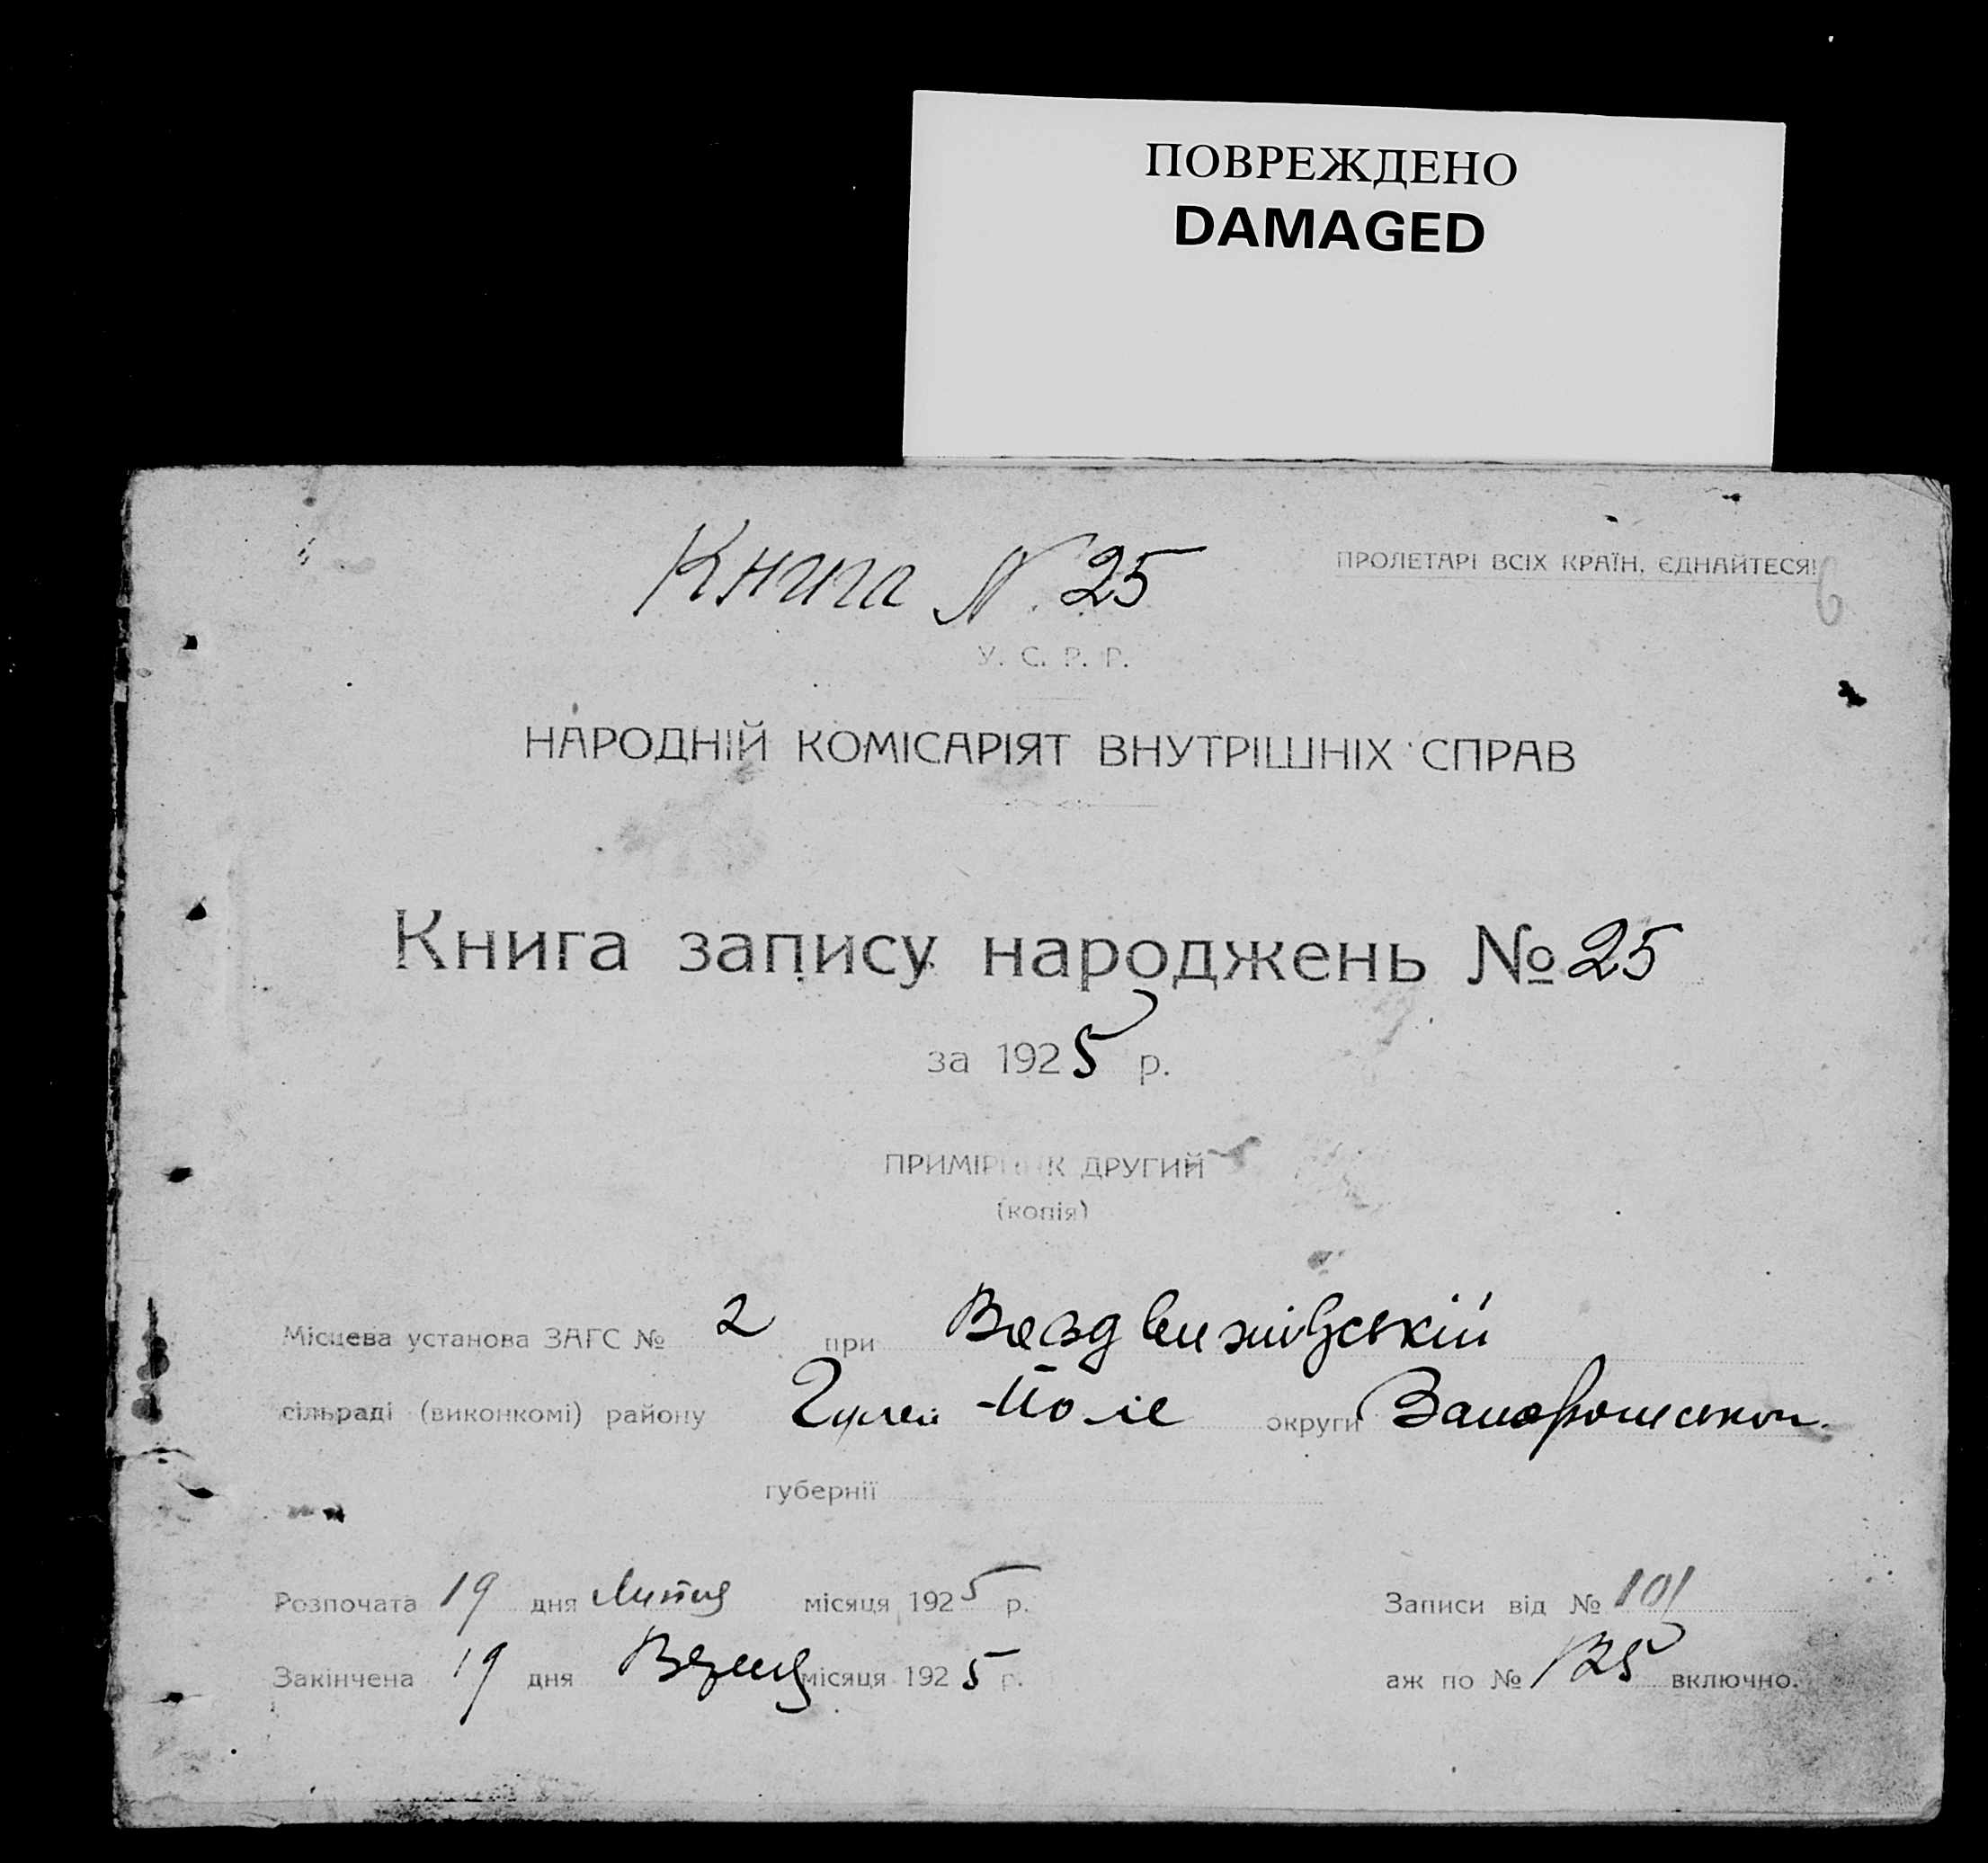 ПОВРЕЖДЕНО
DAMAGED
Книга N. 25
ПРОЛЕТАРІ ВСІХ КРАЇН, ЄДНАЙТЕСЯ!
6
У. С. Р. Р.
НАРОДНІЙ КОМІСАРІЯТ ВНУТРІШНІХ СПРАВ
Книга запису народжень № 25
за 1925 р.
ПРИМІРНИК ДРУГИЙ
(копія)
Місцева установа ЗАГС № 2 при Воздвижівській
сільраді (виконкомі) району Гуляй-Поле округи Запорожської
губернії
Розпочата 19 дня Липня місяця 1925 р.
Записи від № 101
Закінчена 19 дня місяця 1925 р.
аж по № 125 включно.